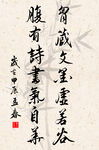 胸藏文墨虚若谷
腹有詩書氣自華
歲在甲辰孟春